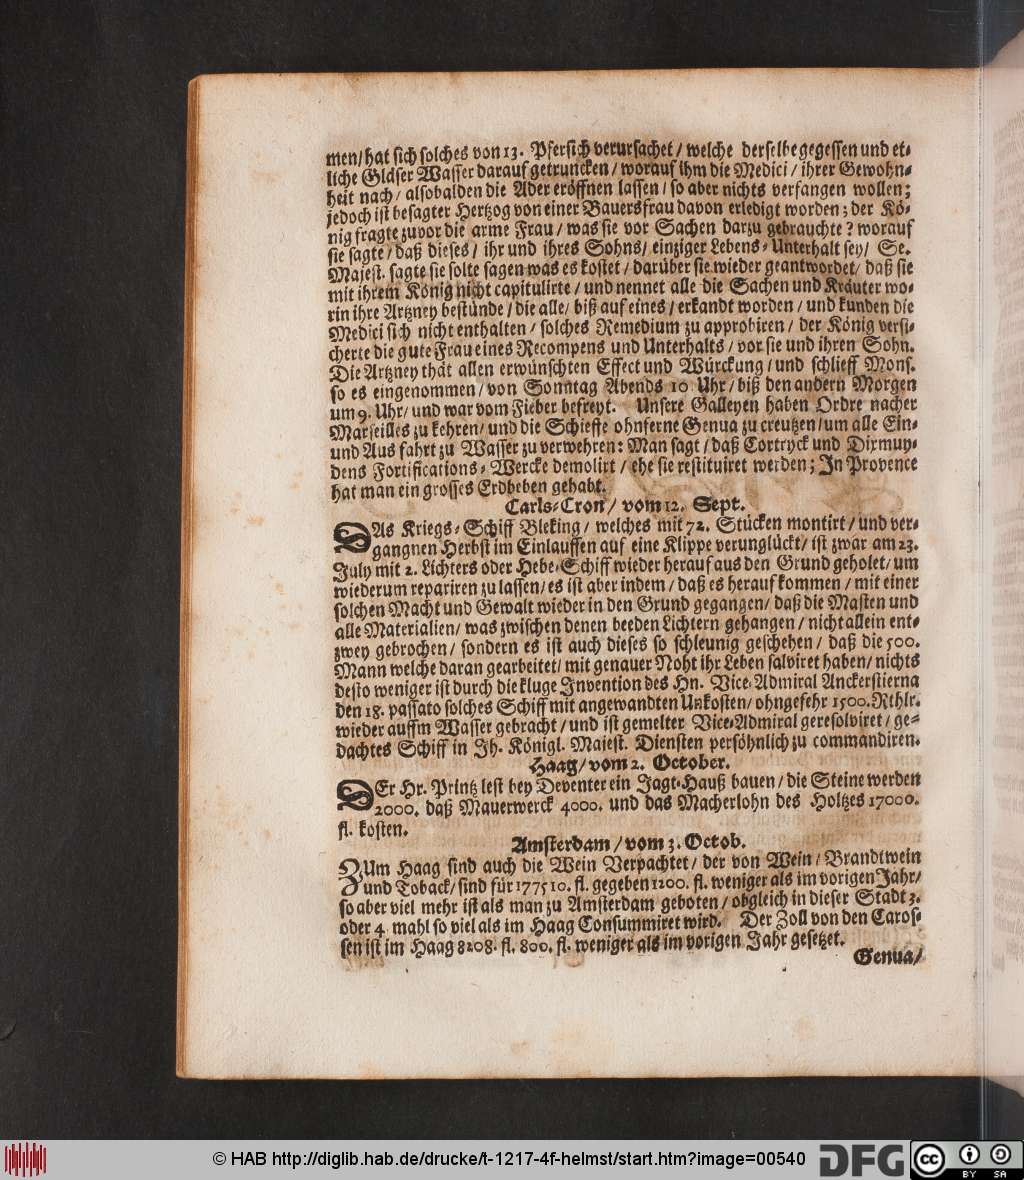 men/ hat sich solches von 13. Pfersich verursachet / welche derselbe gegessen und et-
liche Gläser Wasser darauf getruncken / worauf ihm die Medici / ihrer Gewohn-
heit nach / alsobalden die Ader eröffnen lassen / so aber nichts verfangen wollen;
jedoch ist besagter Hertzog von einer Bauersfrau davon erledigt worden; der Kö-
nig fragte zuvor die arme Frau / was sie vor Sachen darzu gebrauchte? worauf
sie sagte / daß dieses / ihr und ihres Sohns / einziger Lebens-Unterhalt sey / Se.
Majest. sagte sie solte sagen was es kostet / darüber sie wieder geantwordet / daß sie
mit ihrem König nicht capitulirte / und nennet alle die Sachen und Kräuter wo-
rin ihre Artzney bestünde / die alle / biß auf eines / erkandt worden / und kunden die
Medici sich nicht enthalten / solches Remedium zu approbiren / der König versi-
cherte die gute Frau eines Recompens und Unterhalts / vor sie und ihren Sohn.
Die Artzney thät allen erwünschten Effect und Würckung / und schlieff Mons.
so es eingenommen / von Sonntag Abends 10 Uhr / biß den andern Morgen
um 9. Uhr / und war vom Fieber befreyt. Unsere Galleyen haben Ordre nacher
Marseilles zu kehren / und die Schieffe ohnferne Genua zu creutzen / um alle Ein-
und Ausfahrt zu Wasser zu verwehren: Man sagt / daß Cortryck und Dixmuy-
dens Fortifications-Wercke demolirt / ehe sie restituiret werden; In Provence
hat man ein grosses Erdbeben gehabt.
Carls-Cron / vom 12. Sept.
DAs Kriegs-Schiff Bleking / welches mit 72. Stücken montirt / und ver-
gangnen Herbst im Einlauffen auf eine Klippe verunglückt / ist zwar am 23.
July mit 2. Lichters oder Hebe-Schiff wieder herauf aus den Grund geholet / um
wiederum repariren zu lassen / es ist aber indem / daß es herauf kommen / mit einer
solchen Macht und Gewalt wieder in den Grund gegangen / daß die Masten und
alle Materialien / was zwischen denen beeden Lichtern gehangen / nicht allein ent-
zwey gebrochen / sondern es ist auch dieses so schleunig geschehen / daß die 500.
Mann welche daran gearbeitet / mit genauer Noht ihr Leben salviret haben / nichts
desto weniger ist durch die kluge Invention des Hn. Vice-Admiral Anckerstierna
den 18. passato solches Schiff mit angewandten Unkosten / ohngefehr 1500. Rthlr.
wieder auffm Wasser gebracht / und ist gemelter Vice-Admiral geresolviret / ge-
dachtes Schiff in Jh. Königl. Majest. Diensten persöhnlich zu commandiren.
Haag / vom 2. October.
DEr Hr. Printz lest bey Deventer ein Jagt-Hauß bauen / die Steine werden
2000. daß Mauerwerck 4000. und das Macherlohn des Holtzes 17000.
fl. kosten.
Amsterdam / vom 3. Octob.
ZUm Haag sind auch die Wein Verpachtet / der von Wein / Brandtwein
und Toback / sind für 177510. fl. gegeben 1200. fl. weniger als im vorigen Jahr /
so aber viel mehr ist als man zu Amsterdam geboten / obgleich in dieser Stadt 3.
oder 4 mahl so viel als im Haag Consummiret wird. Der Zoll von den Caros-
sen ist im Haag 8208. fl. 800. fl. weniger als im vorigen Jahr gesetzet.
Genua /
© HAB http://diglib.hab.de/drucke/t-1217-4f-helmst/start.htm?image=00540
DFG
cc
BY SA